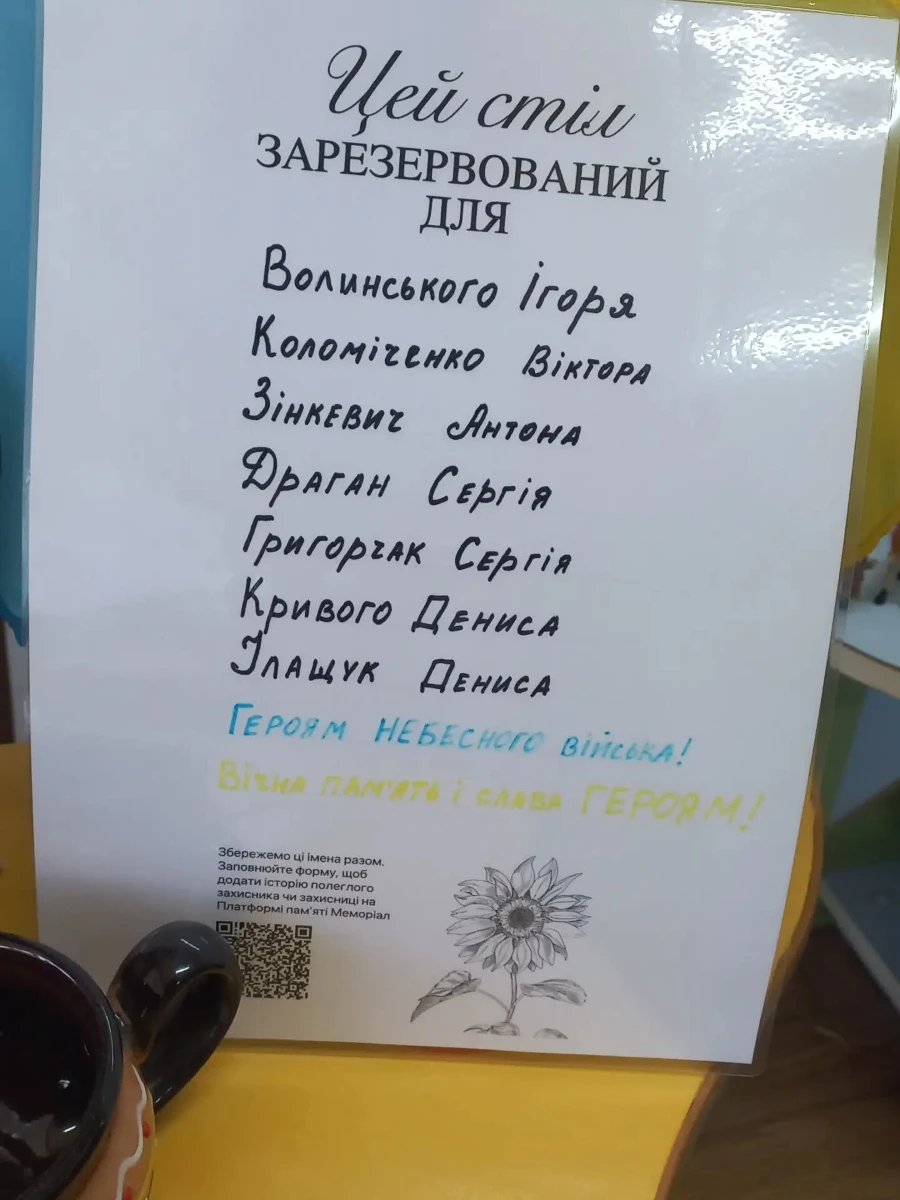 Цей стіл
ЗАРЕЗЕРВОВАНИЙ
ДЛЯ
Волинського Ігоря
Коломіченко Віктора
Зінкевич Антона
Драган Сергія
Григорчак Сергія
Кривого Дениса
Ілащук Дениса
Героям НЕБЕСНОГО війська!
Вічна пам'ять і слава ГЕРОЯМ!
Збережемо ці імена разом.
Заповнюйте форму, щоб
додати історію полеглого
захисника чи захисниці на
Платформі пам'яті Меморіал